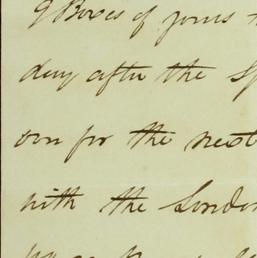 9 Boxes of yours
day after the Sp
own for the next
with the London